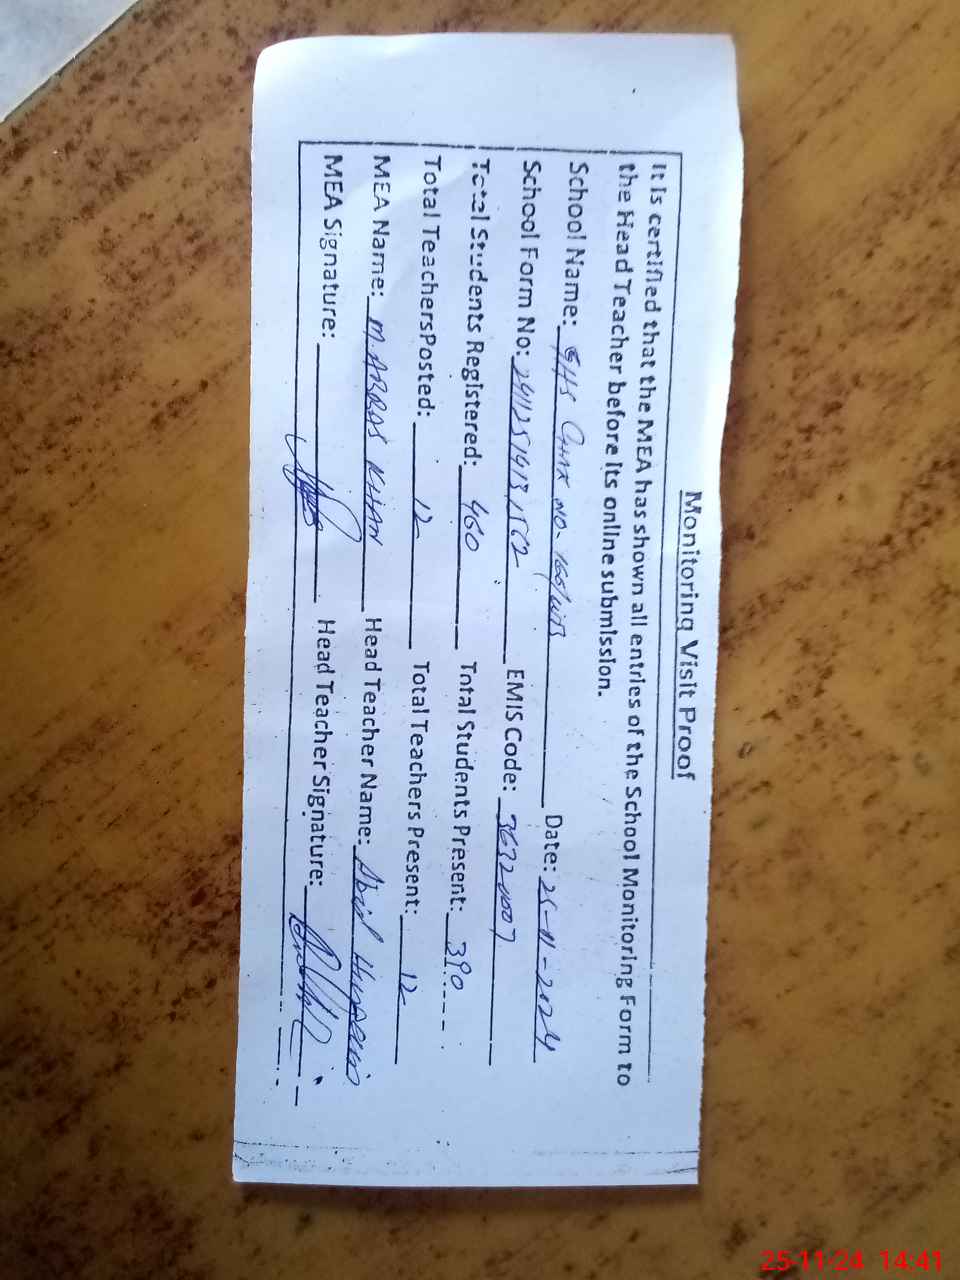 Monitoring Visit Proof
It is certified that the MEA has shown all entries of the School Monitoring Form to
the Head Teacher before its online submission.
School Name: GHS Chak No. Date: 25-11-2024
School Form No: EMIS Code:
Total Students Registered: 460 Total Students Present: 390
Total Teachers Posted: 12 Total Teachers Present: 12
MEA Name: M. ABBAS KHAN Head Teacher Name: Abid Hussain
MEA Signature: Head Teacher Signature:
25-11-24 14:41